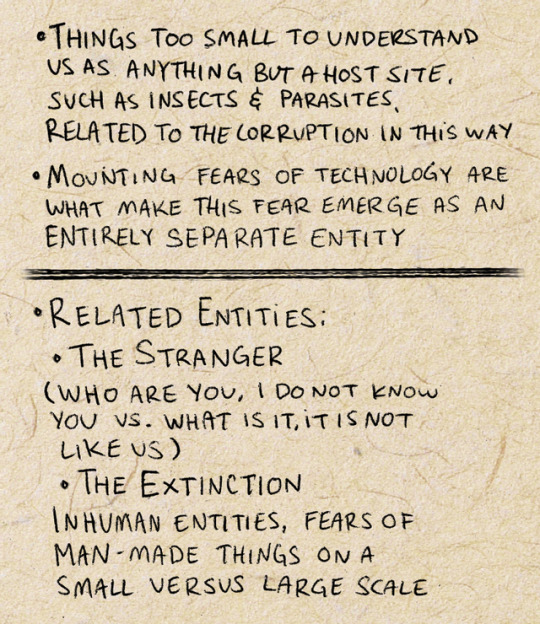 • THINGS TOO SMALL TO UNDERSTAND
US AS ANYTHING BUT A HOST SITE,
SUCH AS INSECTS & PARASITES,
RELATED TO THE CORRUPTION IN THIS WAY
• MOUNTING FEARS OF TECHNOLOGY ARE
WHAT MAKE THIS FEAR EMERGE AS AN
ENTIRELY SEPARATE ENTITY
• RELATED ENTITIES:
• THE STRANGER
(WHO ARE YOU, I DO NOT KNOW
YOU VS. WHAT IS IT, IT IS NOT
LIKE US)
• THE EXTINCTION
INHUMAN ENTITIES, FEARS OF
MAN-MADE THINGS ON A
SMALL VERSUS LARGE SCALE